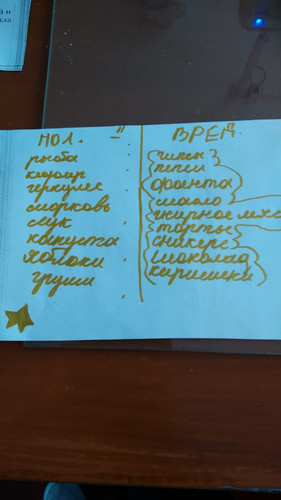 ПОЛ. –"–
рыба
кефир
геркулес
морковь
лук
капуста
яблоки
груши
ВРЕД.
чипсы
пепси
фанта
жирное мясо
торты
сникерс
шоколад
кириешки